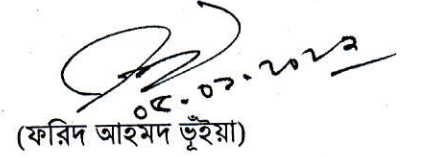 ০৫.০১.২০২২
(ফরিদ আহমদ ভূঁইয়া)